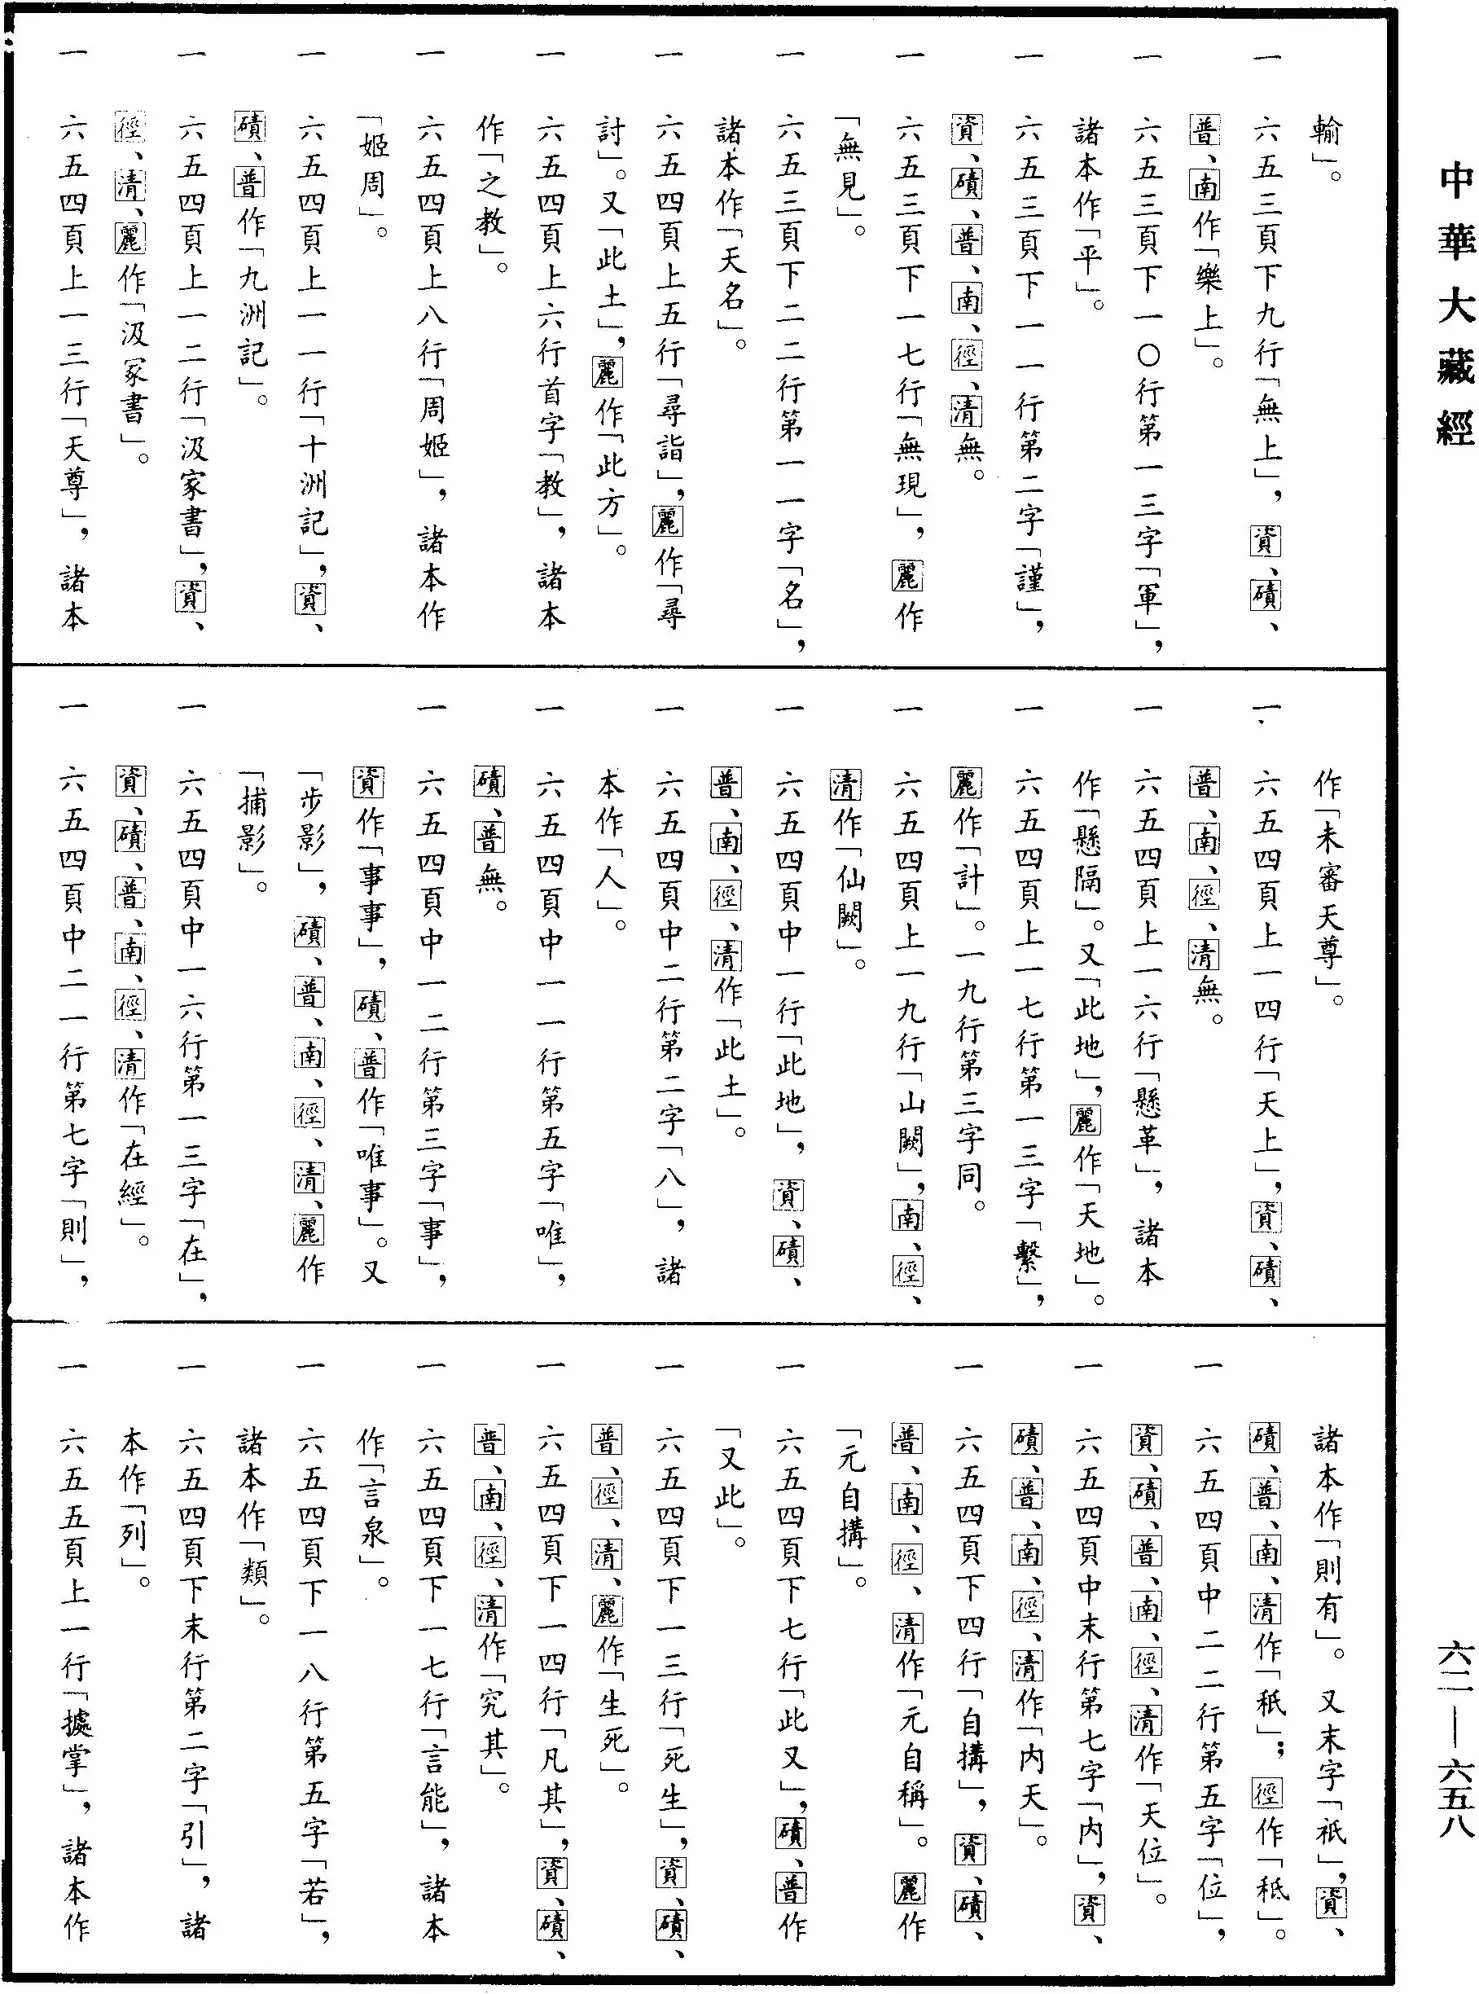 中華大藏經
輸」。
一 六五三頁下九行「無上」，資、磧、
普、南作「樂上」。
一 六五三頁下一〇行第一三字「軍」，
諸本作「平」。
一 六五三頁下一一行第二字「謹」，
資、磧、普、南、徑、清無。
一 六五三頁下一七行「無現」，麗作
「無見」。
一 六五三頁下二二行第一一字「名」，
諸本作「天名」。
一 六五四頁上五行「尋詣」，麗作「尋
討」。又「此土」，麗作「此方」。
一 六五四頁上六行首字「教」，諸本
作「之教」。
一 六五四頁上八行「周姬」，諸本作
「姬周」。
一 六五四頁上一一行「十洲記」，資、
磧、普作「九洲記」。
一 六五四頁上一二行「汲家書」，資、
徑、清、麗作「汲冢書」。
一 六五四頁上一三行「天尊」，諸本
作「未審天尊」。
一 六五四頁上一四行「天上」，資、磧、
普、南、徑、清無。
一 六五四頁上一六行「懸革」，諸本
作「懸隔」。又「此地」，麗作「天地」。
一 六五四頁上一七行第一三字「繫」，
麗作「計」。一九行第三字同。
一 六五四頁上一九行「山闕」，南、徑、
清作「仙闕」。
一 六五四頁中一行「此地」，資、磧、
普、南、徑、清作「此土」。
一 六五四頁中二行第二字「八」，諸
本作「人」。
一 六五四頁中一一行第五字「唯」，
磧、普無。
一 六五四頁中一二行第三字「事」，
資作「事事」，磧、普作「唯事」。又
「步影」，磧、普、南、徑、清、麗作
「捕影」。
一 六五四頁中一六行第一三字「在」，
資、磧、普、南、徑、清作「在經」。
一 六五四頁中二一行第七字「則」，
諸本作「則有」。又末字「祇」，資、
磧、普、南、清作「秖」；徑作「秪」。
一 六五四頁中二二行第五字「位」，
資、磧、普、南、徑、清作「天位」。
一 六五四頁中末行第七字「內」，資、
磧、普、南、徑、清作「內天」。
一 六五四頁下四行「自搆」，資、磧、
普、南、徑、清作「元自稱」。麗作
「元自搆」。
一 六五四頁下七行「此又」，磧、普作
「又此」。
一 六五四頁下一三行「死生」，資、磧、
普、徑、清、麗作「生死」。
一 六五四頁下一四行「凡其」，資、磧、
普、南、徑、清作「究其」。
一 六五四頁下一七行「言能」，諸本
作「言泉」。
一 六五四頁下一八行第五字「若」，
諸本作「類」。
一 六五四頁下末行第二字「引」，諸
本作「列」。
一 六五五頁上一行「據掌」，諸本作
六二—六五八